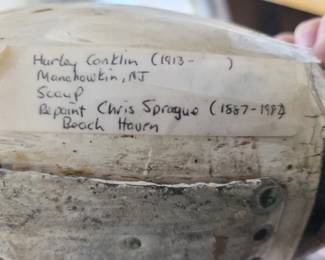 Hurley Conklin (1913-     )
Manahawkin, NJ
Scaup
Repaint Chris Sprague (1887-1982)
Beach Haven